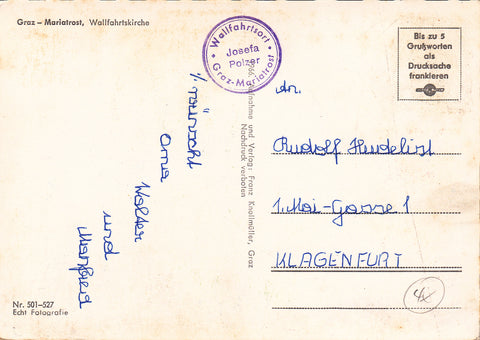 Graz – Mariatrost, Wallfahrtskirche
Wallfahrtsort
Josefa
Polzer
Graz-Mariatrost
Bis zu 5
Grußworten
als
Drucksache
frankieren
wünscht
Oma
Walter
und
Manfred
Aufnahme und Verlag: Franz Knollmüller, Graz
Nachdruck verboten
An
Rudolf Hudelist
1. Mai-Gasse 1
KLAGENFURT
Nr. 501–527
Echt Fotografie